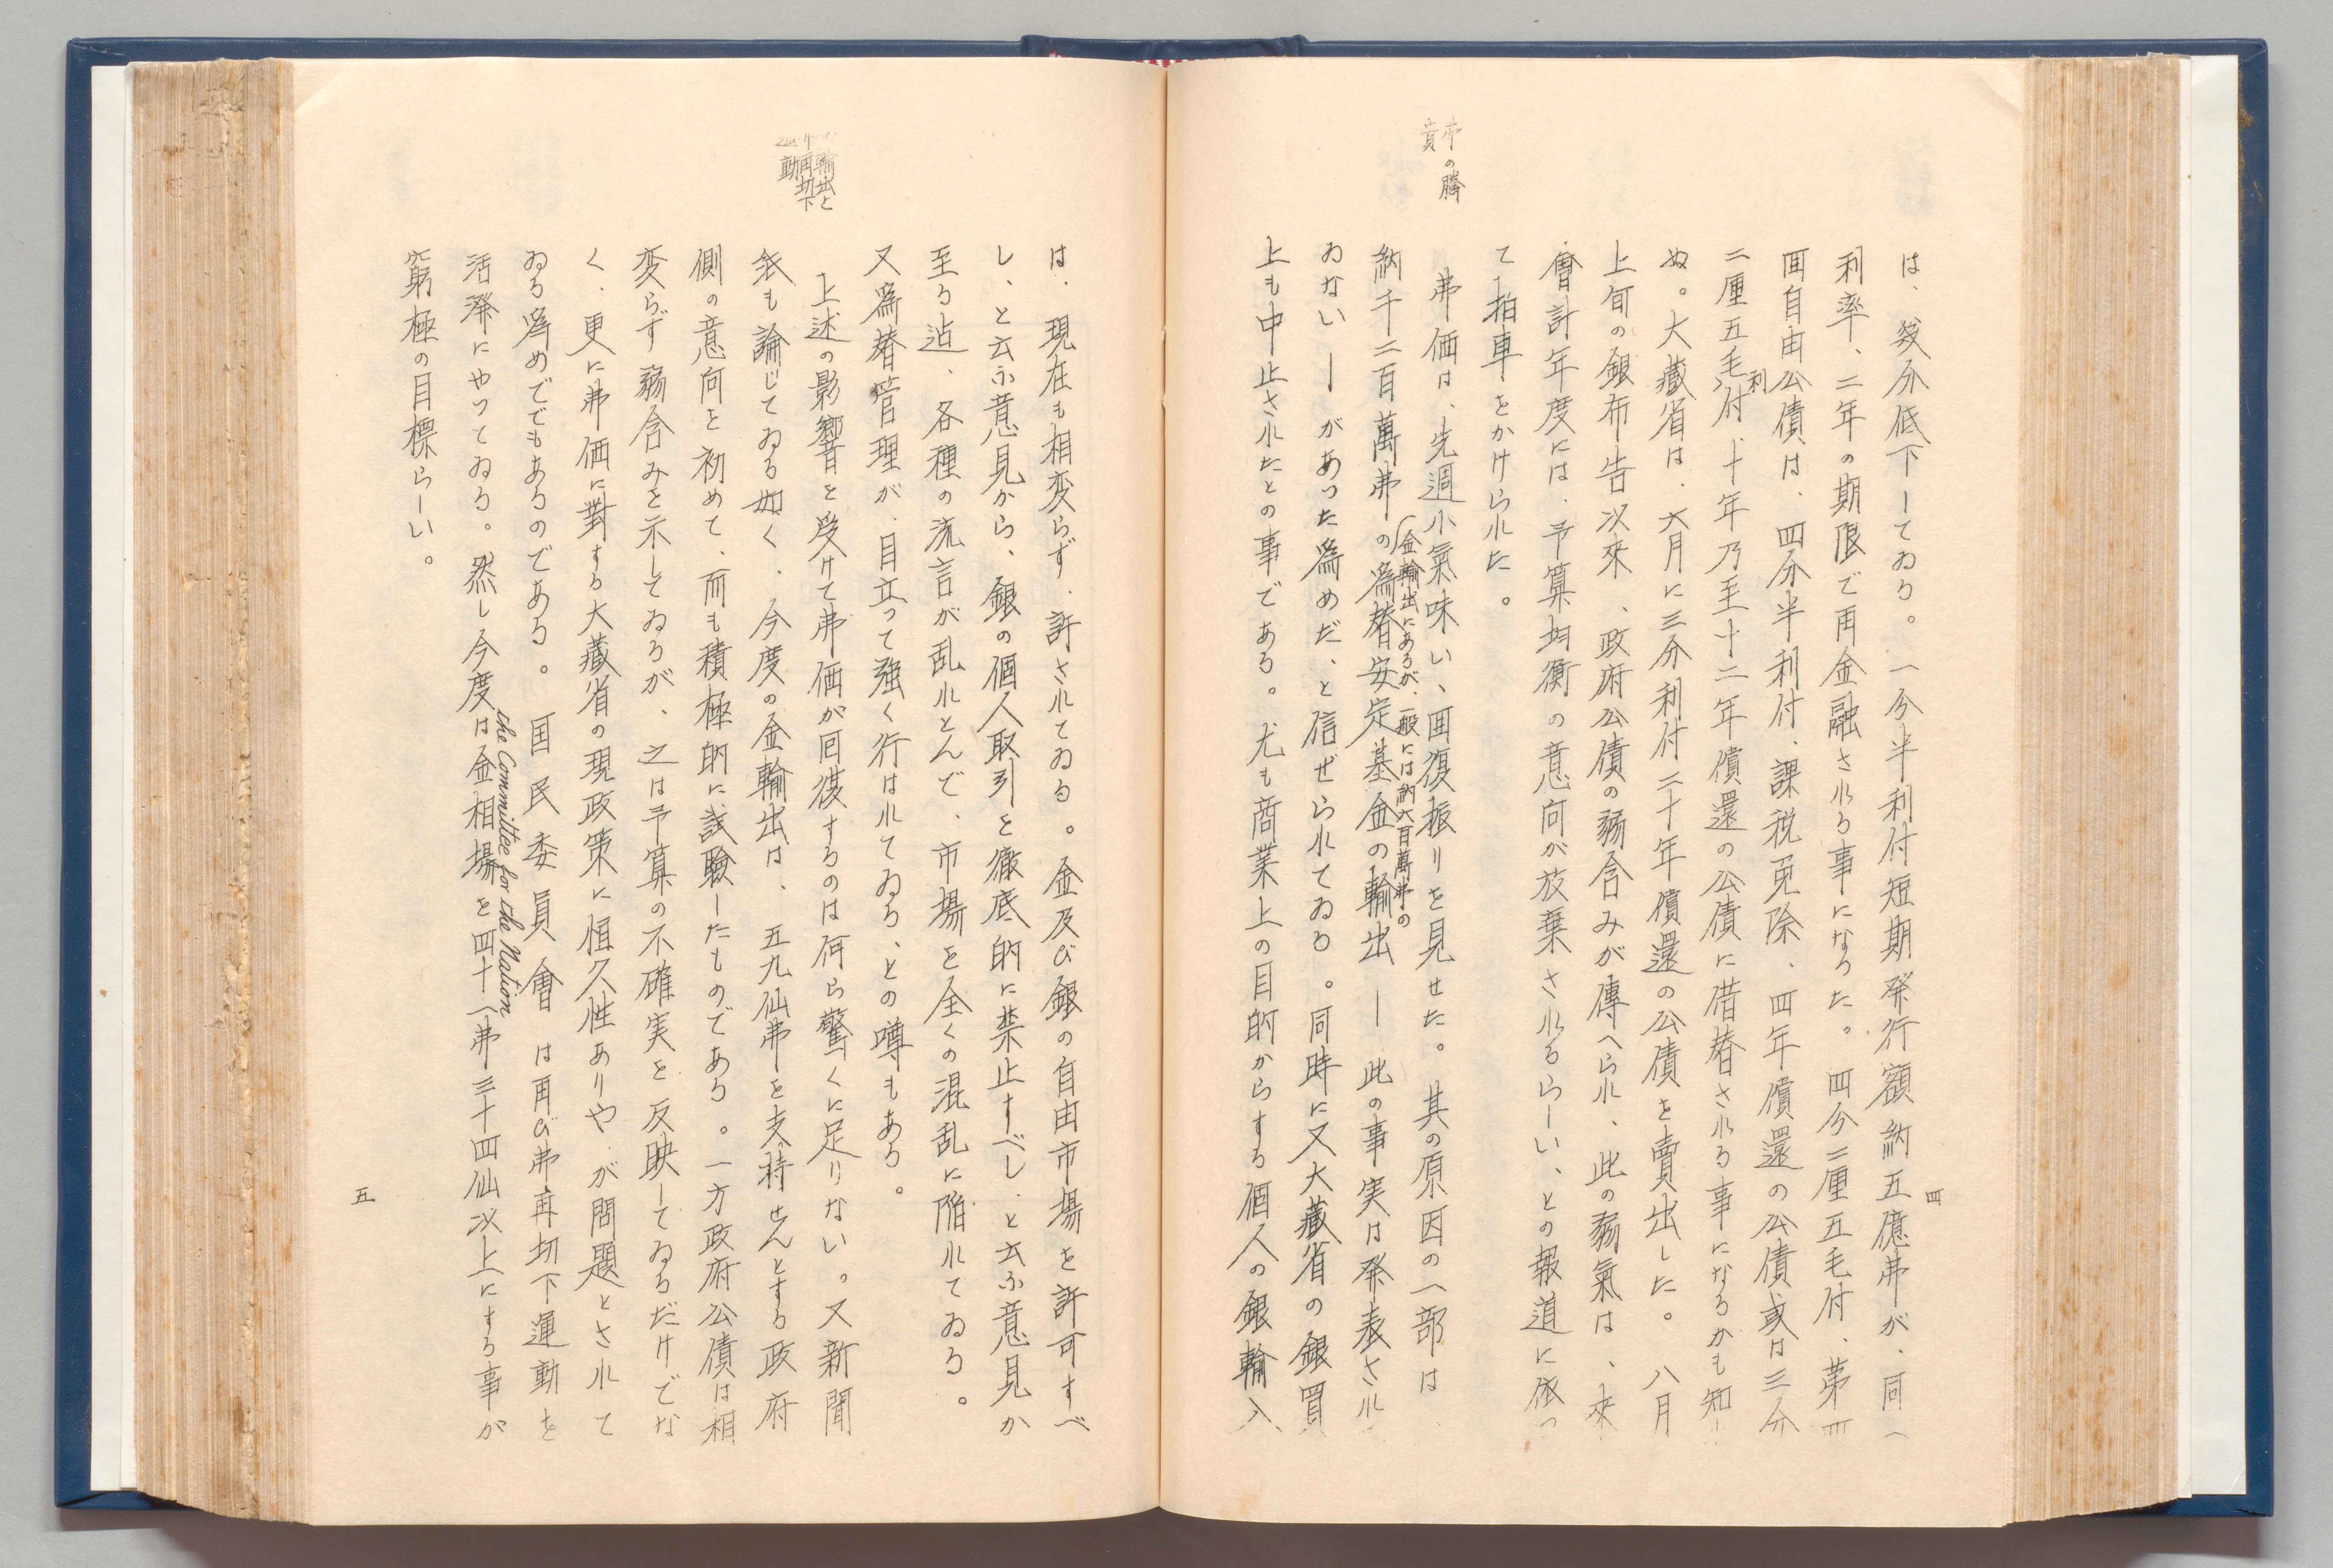 四
は、幾分低下してゐる。一分半利付短期発行額納五億弗が、同一
利率、二年の期限で再金融される事になつた。四分二厘五毛付、第四
回自由公債は、四分半利付、課税免除、四年償還の公債或は三分
二厘五毛利付、十年乃至十二年償還の公債に借替される事になるかも知
ぬ。大藏省は、六月に三分利付二十年償還の公債を賣出した。八月
上旬の銀布告以來、政府公債の弱含みが傳へられ、此の弱氣は、來
會計年度には、予算均衡の意向が放棄されるらしい、との報道に依つ
て拍車をかけられた。
弗の騰
貴
弗価は、先週小氣味いゝ回復振りを見せた。其の原因の一部は
(金輸出にあるが、一般には納六百萬弗の
納千二百萬弗の為替安定基金の輸出――此の事実は発表され
ゐない――があつた為めだ、と信ぜられてゐる。同時に又大藏省の銀買
上も中止されたとの事である。尤も商業上の目的からする個人の銀輸入
は、現在も相変らず、許されてゐる。金及び銀の自由市場を許可すべ
し、と云ふ意見から、銀の個人取引を徹底的に禁止すべし、と云ふ意見か
至る迠、各種の流言が乱れとんで、市場を全くの混乱に陥れてゐる。
又為替管理が、目立つて強く行はれてゐる、との噂もある。
輸出と
再切下
動
上述の影響を受けて弗価が回復するのは何ら驚くに足りない。又新聞
紙も論じてゐる如く、今度の金輸出は、五九仙弗を支持せんとする政府
側の意向を初めて、而も積極的に試験したものである。一方政府公債は相
変らず弱含みを示してゐるが、之は予算の不確実を反映してゐるだけでな
く、更に弗価に對する大藏省の現政策に恒久性ありや、が問題とされて
ゐる為めででもあるのである。国民委員會は再び弗再切下運動を
the Committee for the Nation
活溌にやつてゐる。然し今度は金相場を四十一弗三十四仙以上にする事が
窮極の目標らしい。
五